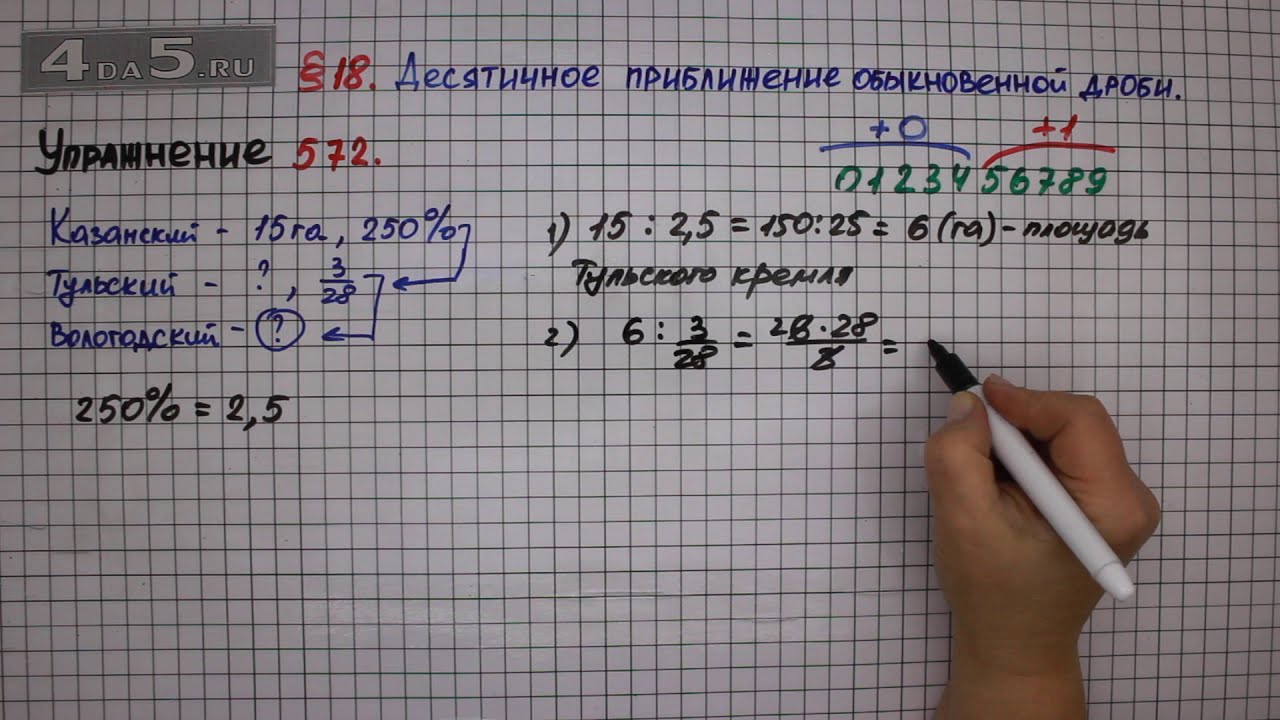 4DA5.RU
§18. Десятичное приближение обыкновенной дроби.
Упражнение 572.
+0 +1
0 1 2 3 4 5 6 7 8 9
Казанский - 15 га, 250%
Тульский - ?, 3/28
Вологодский - ?
250% = 2,5
1) 15 : 2,5 = 150:25 = 6 (га) - площадь
Тульского кремля
2) 6 : 3/28 = ²6·28/3 =